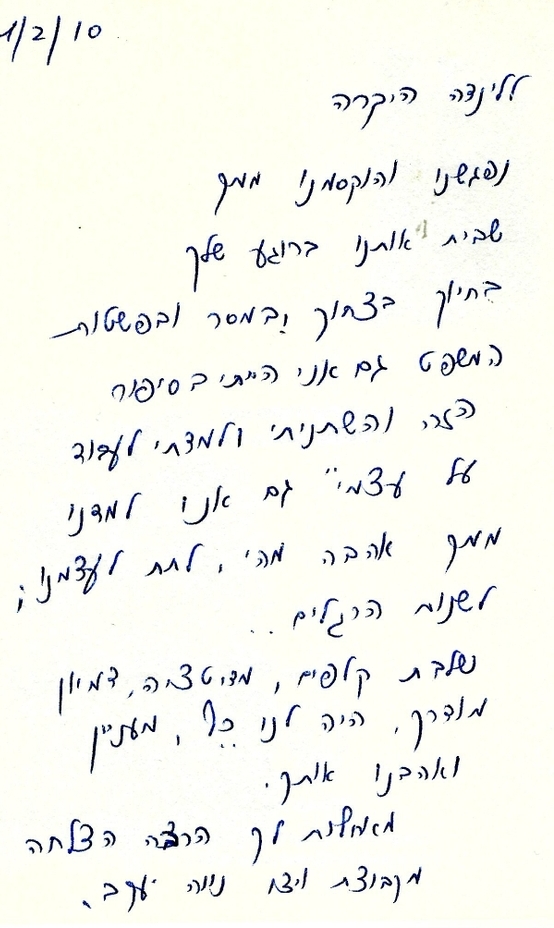 1/2/10
ללינדה היקרה
נפגשנו והוקסמנו ממך
שבית אותנו ברוגע שלך
בחיוך בצחוק ובמסר ובפשטות
המשפט גם אני הייתי בסיפור
הזה והשתניתי ולמדתי לעבוד
על עצמי" גם אנו למדנו
ממך אהבה מהי, לתת לעצמנו,
לשנות הרגלים...
שלבת קלפים, מדיטציה, דמיון
מודרך, היה לנו כיף, מעניין
ואהבנו אותך.
מאחלות לך הרבה הצלחה
מקבוצת ויצו נווה יעקב.